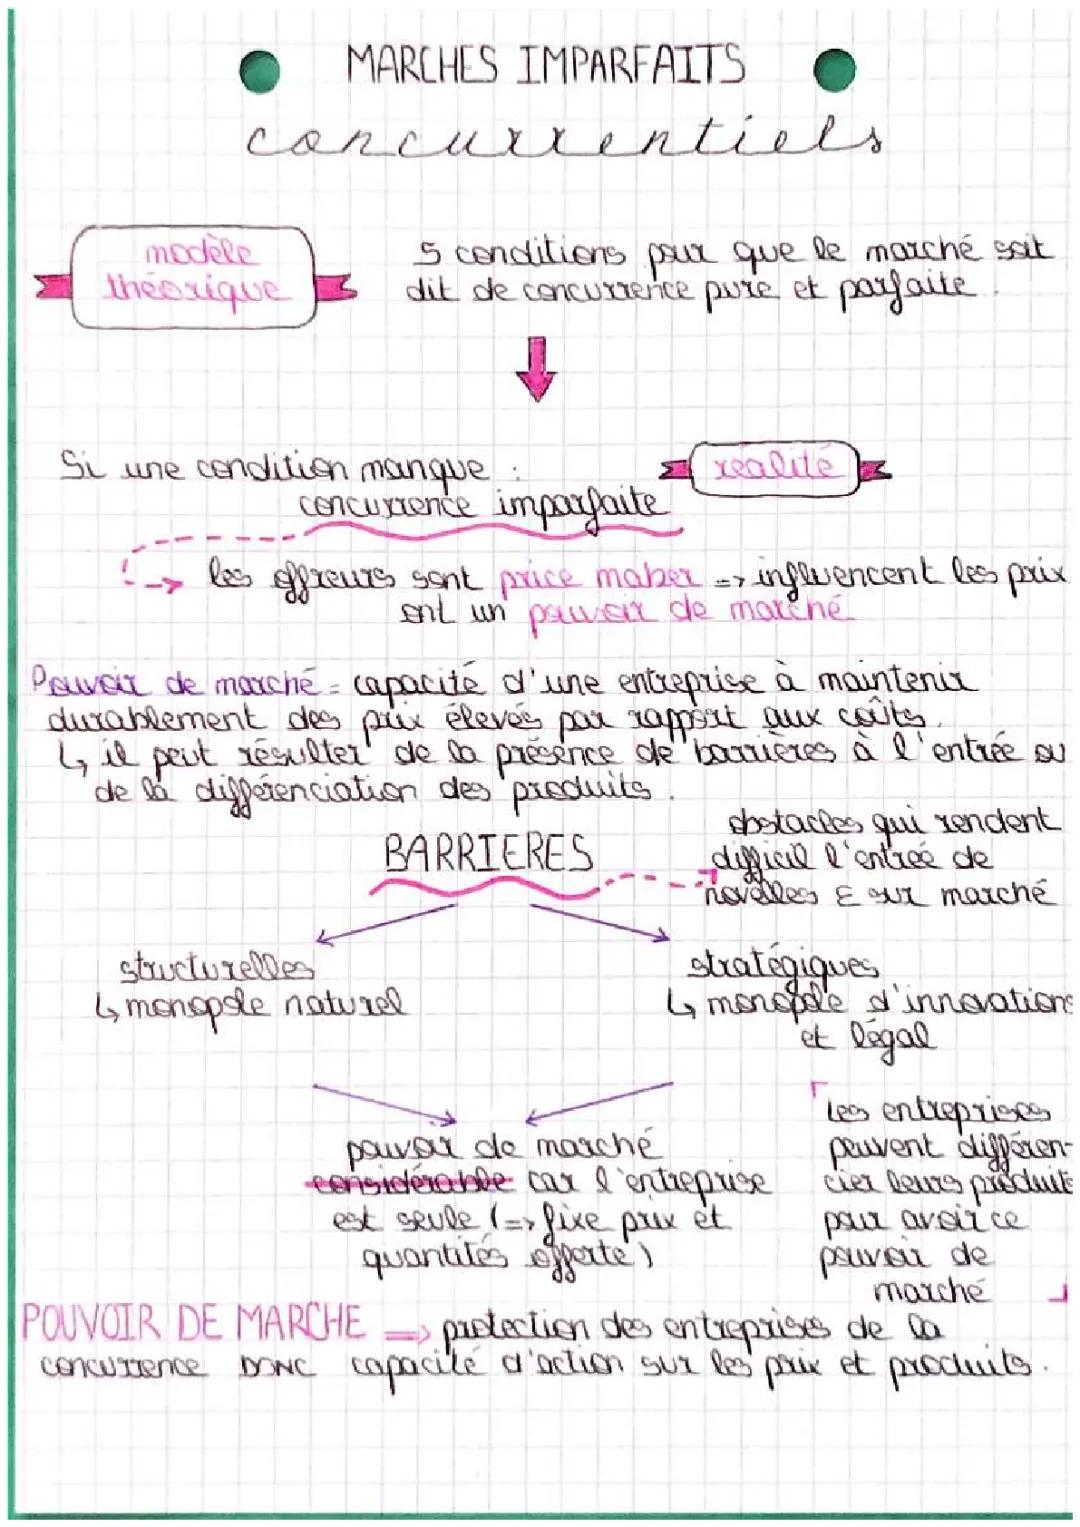 MARCHES IMPARFAITS
concurrentiels
modèle
théorique
5 conditions pour que le marché soit
dit de concurrence pure et parfaite.
Si une condition manque :
réalité
concurrence imparfaite
--> les offreurs sont price maker => influencent les prix
ont un pouvoir de marché
Pouvoir de marché = capacité d'une entreprise à maintenir
durablement des prix élevés par rapport aux coûts.
↳ il peut résulter de la présence de barrières à l'entrée ou
de la différenciation des produits.
BARRIERES
obstacles qui rendent
difficil l'entrée de
novelles E sur marché
structurelles
↳ monopole naturel
stratégiques
↳ monopole d'innovations
et légal
pouvoir de marché
considérable car l'entreprise
est seule (=> fixe prix et
quantités offerte)
Les entreprises
peuvent différen-
cier leurs produits
pour avoir ce
pouvoir de
marché
POUVOIR DE MARCHE => protection des entreprises de la
concurrence DONC capacité d'action sur les prix et produits.